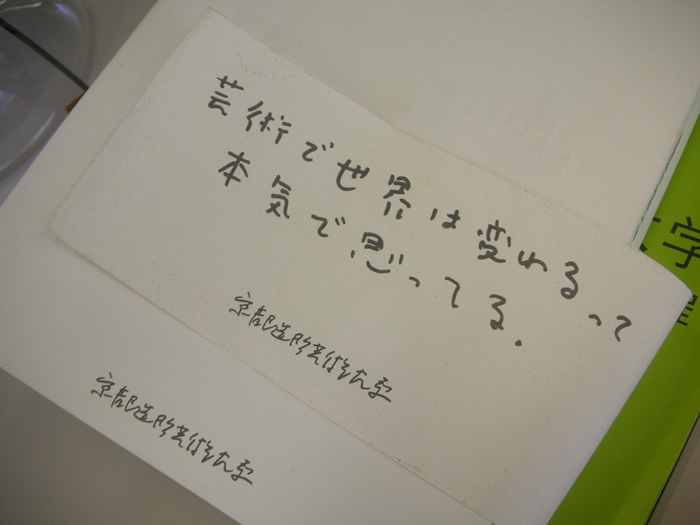 芸術で世界は変わるって
本気で思ってる.
京都造形芸術大学
京都造形芸術大学
字